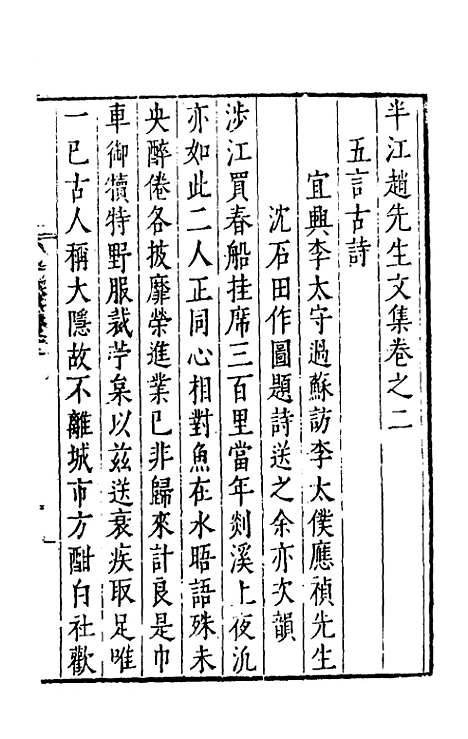 半江趙先生文集卷之二
五言古詩
宜興李太守過蘇訪李太僕應禎先生
沈石田作圖題詩送之余亦次韻
涉江買春船挂席三百里當年剡溪上夜汎
亦如此二人正同心相對魚在水晤語殊未
央醉倦各披靡榮進業已非歸來計良是巾
車御犢特野服裁苧枲以茲送衰疾取足唯
一已古人稱大隱故不離城市方酣白社歡